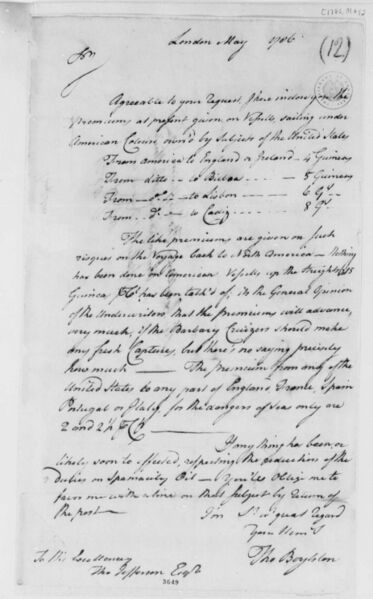 (12)
London May 1786
Sir
Agreeable to your Request, I here inclose you the
Premiums at present given on Vessells, sailing under
American Colours own'd by Subjects of the United States
From America to England or Ireland - 4 Guineas
From ditto - to Bilboa - - - 5 Guineas
From - do - to Lisbon - - - 6 Gs
From - do - to Cadiz - - - 8 Gs
The like premiums are given on such
risques on the Voyage back to North America - Nothing
has been done on American Vessells up the Streights, 15
Guineas has been talk'd of, its the General Opinion
of the Underwriters, that the premiums will advance,
very much, if the Barbary Cruizers should make
any fresh Captures, but there's no saying precisely
how much - The premium from any of the
United States to any part of England France, Spain
Portugal or Italy, for the dangers of Sea only are
2 and 2½
If any thing has been, or
likely soon to effected, respecting the reduction of the
Duties on Spermacity Oil - you'll oblige me to
favor me with a line on that subject by Return of
the post -
I'm Sr. wt great regard
Your Hem S
Tho Boylston
To His Excellency
Tho Jefferson Esqr
3649